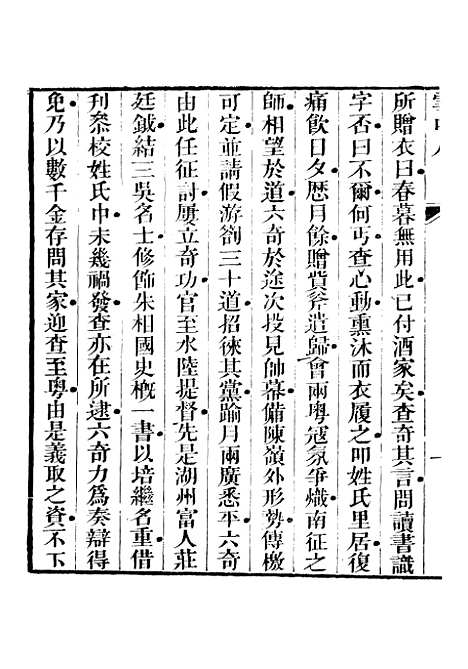 所贈衣曰春暮無用此已付酒家矣查奇其言問讀書識
字否曰不爾何丐查心動熏沐而衣履之叩姓氏里居復
痛飲日夕歷月餘贈貲斧遣歸會兩粵寇氛爭熾南征之
師相望於道六奇於途次投見帥幕備陳嶺外形勢傳檄
可定並請假游劄三十道招徠其黨踰月兩廣悉平六奇
由此任征討屢立奇功官至水陸提督先是湖州富人莊
廷鉞結三吳名士修飾朱相國史槪一書以培繼名重借
刋叅校姓氏中未幾禍發查亦在所逮六奇力爲奏辯得
免乃以數千金存問其家迎查至粵由是義取之資不下